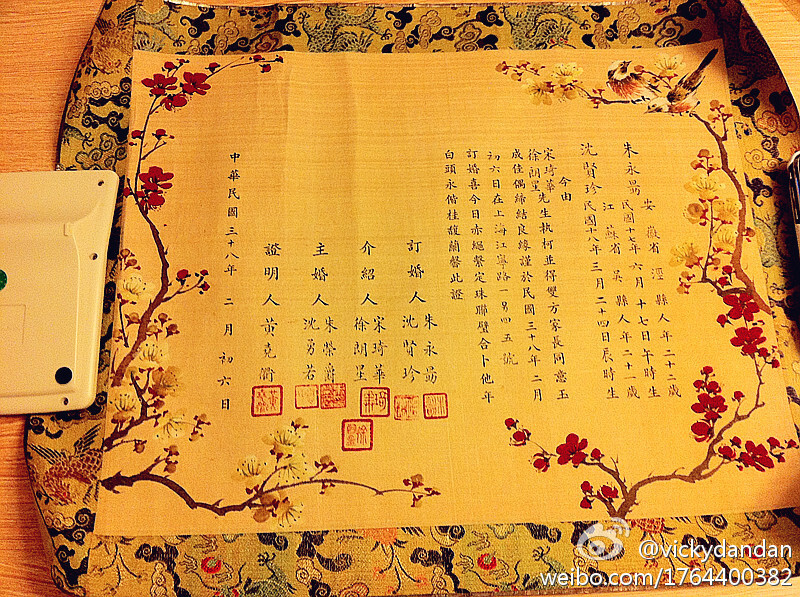 朱永勗 安徽省涇縣人年二十二歲
民國十七年六月十七日午時生
沈賢珍 江蘇省吳縣人年二十一歲
民國十八年三月二十四日辰時生
今由
宋琦華
徐朗星先生執柯並得雙方家長同意玉
成佳偶締結良緣謹於民國三十八年二月
初六日在上海江寧路一弓四五號
訂婚喜今日赤繩繫定珠聯璧合卜他年
白頭永偕桂馥蘭馨此證
訂婚人 朱永勗
沈賢珍
介紹人 宋琦華
徐朗星
主婚人 朱榮爵
沈勇若
證明人 黃克
中華民國三十八年二月初六日
@vickydandan
weibo.com/1764400382